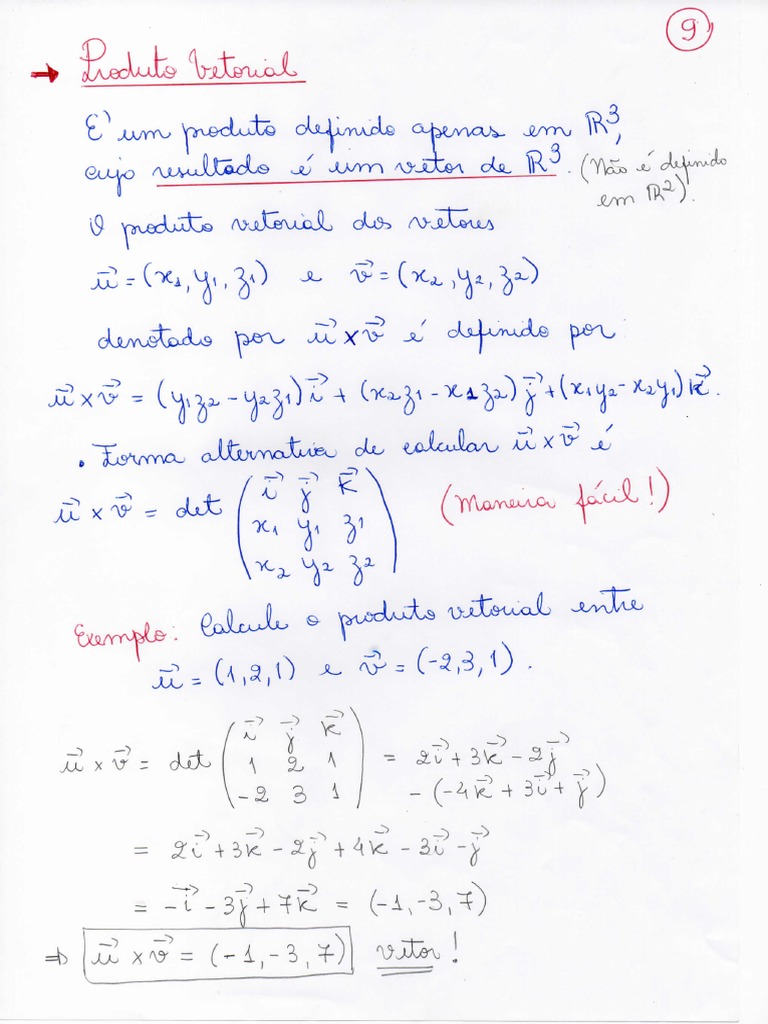 9
→ Produto Vetorial
É um produto definido apenas em ℝ³,
cujo resultado é um vetor de ℝ³. (Não é definido
em ℝ²).
O produto vetorial dos vetores
u⃗ = (x₁, y₁, z₁) e v⃗ = (x₂, y₂, z₂)
denotado por u⃗ × v⃗ é definido por
u⃗ × v⃗ = (y₁z₂ − y₂z₁) i⃗ + (x₂z₁ − x₁z₂) j⃗ + (x₁y₂ − x₂y₁) k⃗.
. Forma alternativa de calcular u⃗ × v⃗ é
i⃗ j⃗ k⃗
u⃗ × v⃗ = det ( x₁ y₁ z₁ ) (Maneira fácil!)
x₂ y₂ z₂
Exemplo: Calcule o produto vetorial entre
u⃗ = (1, 2, 1) e v⃗ = (-2, 3, 1).
i⃗ j⃗ k⃗
u⃗ × v⃗ = det ( 1 2 1 ) = 2i⃗ + 3k⃗ − 2j⃗
-2 3 1 − (−4k⃗ + 3i⃗ + j⃗)
= 2i⃗ + 3k⃗ − 2j⃗ + 4k⃗ − 3i⃗ − j⃗
= −i⃗ − 3j⃗ + 7k⃗ = (−1, −3, 7)
⇒ u⃗ × v⃗ = (−1, −3, 7) vetor!